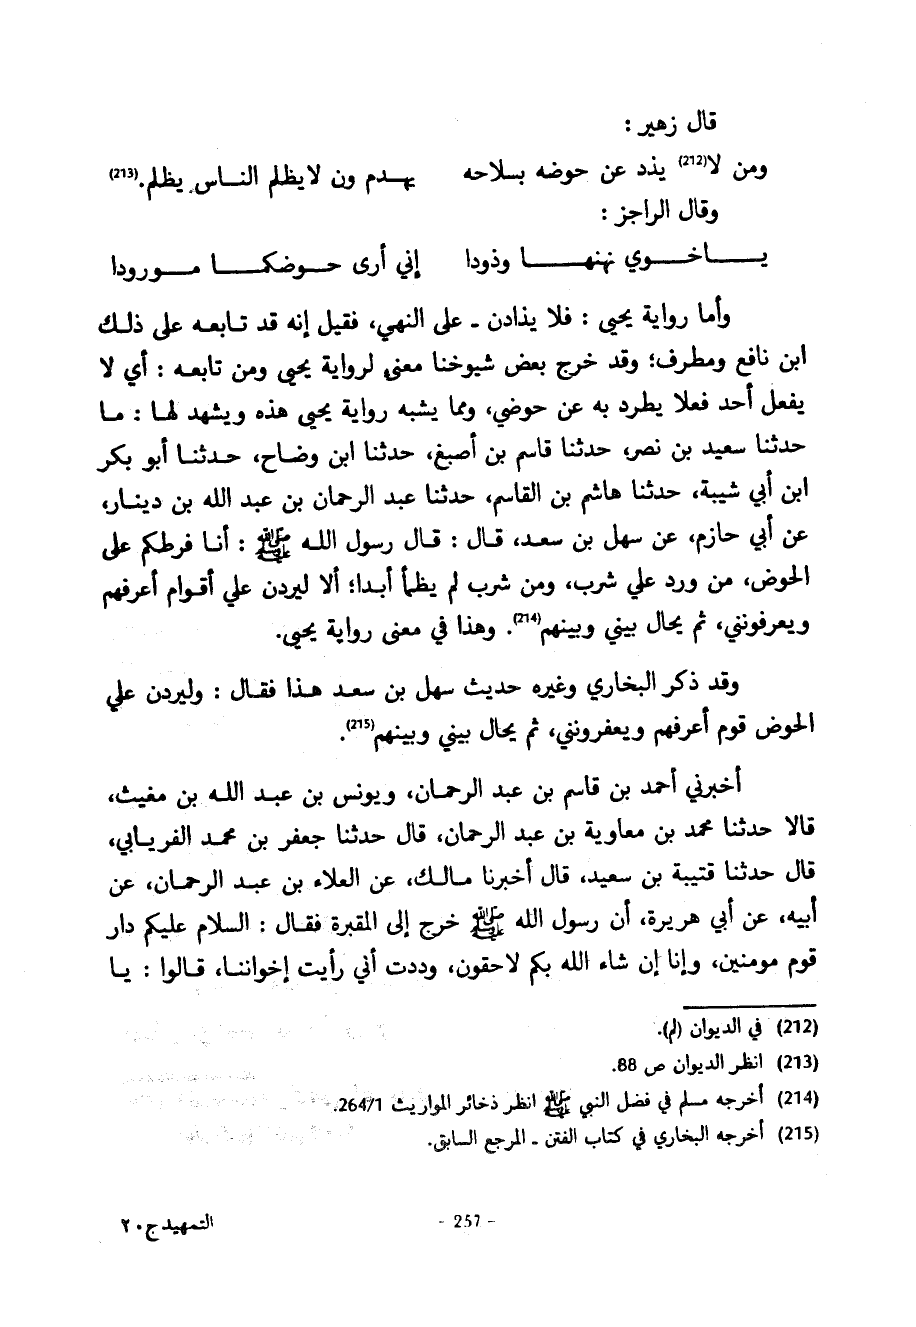 قال زهير :
ومن لا(212) يذد عن حوضه بسلاحه يهـدم ون لا يظلم النـاس يظلم.(213)
وقال الراجز :
يـــاخـــوي نهنهـــا وذودا إني أرى حـوضكـــا مـورودا
وأما رواية يحيى : فلا يذادن ـ على النهي، فقيل إنه قد تـابعـه على ذلـك
ابن نافع ومطرف؛ وقد خرج بعض شيوخنا معنى لرواية يحيى ومن تابعـه : أي لا
يفعل أحد فعلا يطرد به عن حوضي، ومما يشبه رواية يحيى هذه ويشهد لهـا : مـا
حدثنا سعيد بن نصر، حدثنا قاسم بن أصبغ، حدثنا ابن وضـاح، حـدثنـا أبو بكر
ابن أبي شيبة، حدثنا هاشم بن القاسم، حدثنا عبد الرحمان بن عبد الله بن دينـار،
عن أبي حازم، عن سهل بن سعـد، قـال : قـال رسول اللـه ﷺ : أنـا فرطكم على
الحوض، من ورد علي شرب، ومن شرب لم يظمأ أبـدا؛ ألا ليردن علي أقـوام أعرفهم
ويعرفونني، ثم يحال بيني وبينهم(214). وهذا في معنى رواية يحيى.
وقد ذكر البخاري وغيره حديث سهل بن سعـد هـذا فقـال : وليردن علي
الحوض قوم أعرفهم ويعفرونني، ثم يحال بيني وبينهم(215).
أخبرني أحمد بن قاسم بن عبد الرحمـان، ويونس بن عبـد اللـه بن مغيث،
قالا حدثنا محمد بن معاوية بن عبد الرحمان، قال حدثنا جعفر بن محمـد الفريـابي،
قال حدثنا قتيبة بن سعيد، قال أخبرنا مـالـك، عن العلاء بن عبـد الرحمـان، عن
أبيه، عن أبي هريرة، أن رسول الله ﷺ خرج إلى المقبرة فقـال : السلام عليكم دار
قوم مومنين، وإنا إن شاء الله بكم لاحقون، وددت أني رأيت إخواننـا، قـالوا : يـا
(212) في الديوان (لم).
(213) انظر الديوان ص 88.
(214) أخرجه مسلم في فضل النبي ﷺ انظر ذخائر المواريث 264/1.
(215) أخرجه البخاري في كتاب الفتن ـ المرجع السابق.
- 257 -
التمهيد ج ٢٠